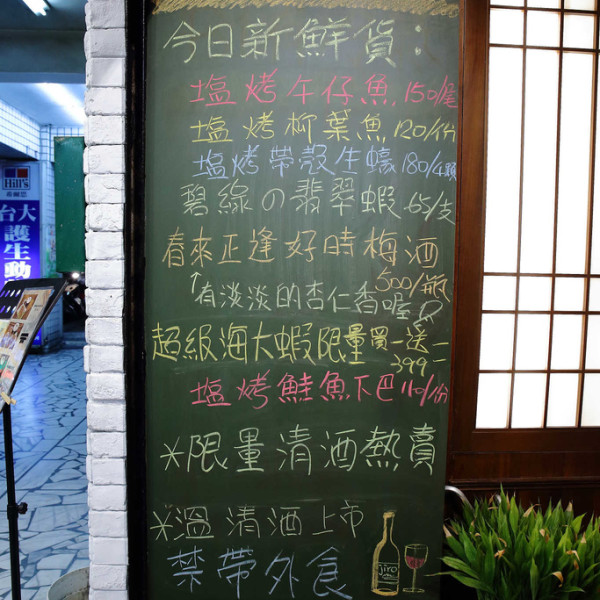 今日新鮮貨：
塩烤午仔魚 150/尾
塩烤柳葉魚 120/份
塩烤帶殼生蠔 180/4顆
碧綠の翡翠蝦 65/支
春來正逢好時梅酒
500/瓶
↑有淡淡的杏仁香喔
超級海大蝦限量買一送一
399
塩烤鮭魚下巴 110/份
※限量清酒熱賣
※溫清酒上市
禁帶外食
jiro
Hill's
台大
護生動